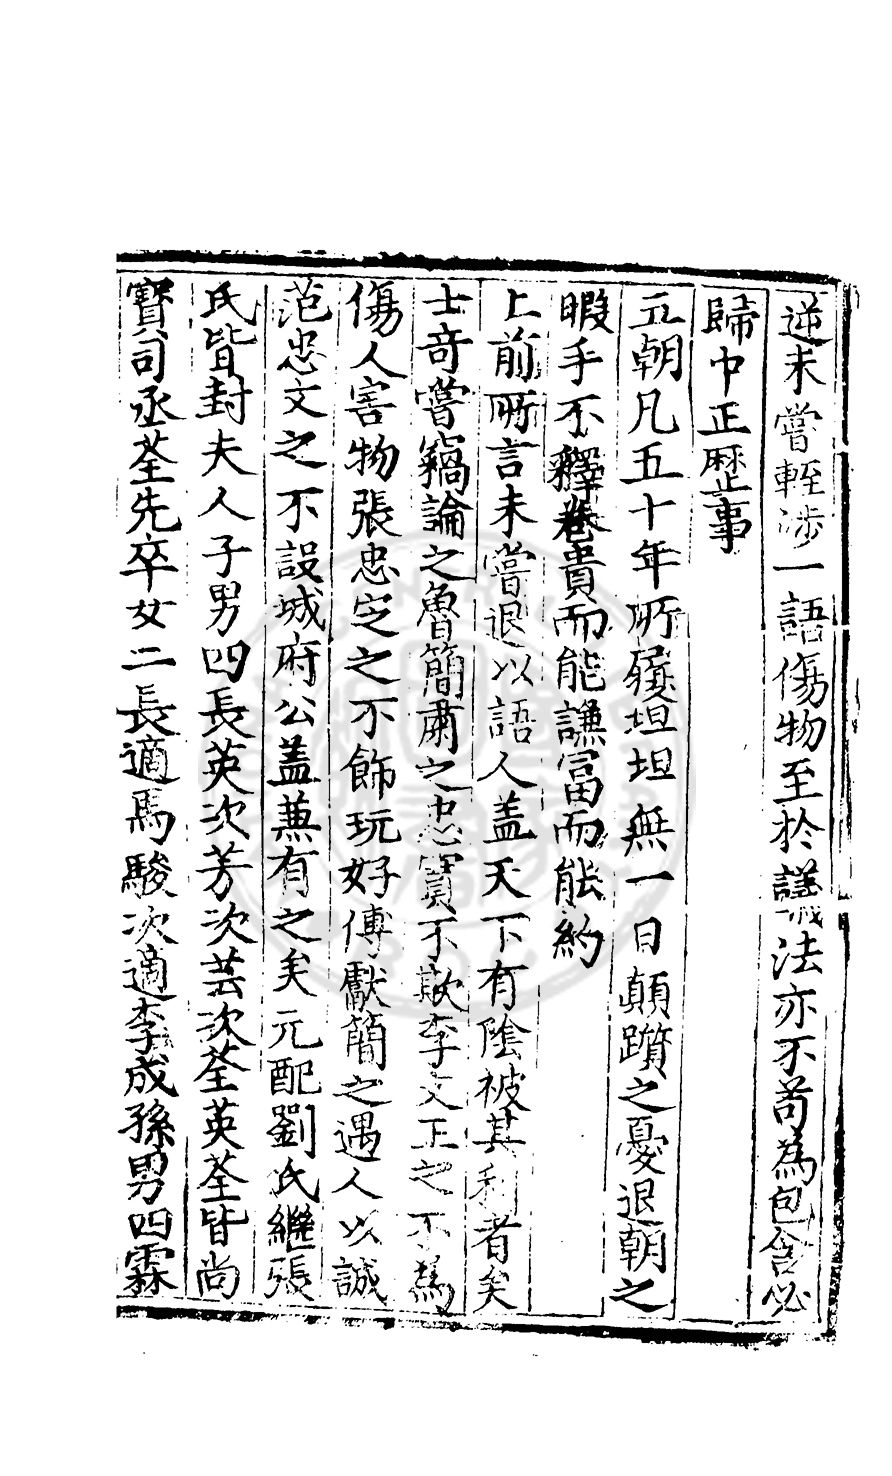 逆未嘗輕涉一語傷物至於議法亦不苟為包含必
歸中正歷事
五朝凡五十年所履坦坦無一日顛躓之憂退朝之
暇手不釋卷貴而能謙富而能約
上前所言未嘗退以語人盖天下有陰被其利者矣
士奇嘗竊論之魯簡肅之忠實不欺李文正之不為
傷人害物張忠定之不飾玩好傅獻簡之遇人以誠
范忠文之不設城府公盖兼有之矣元配劉氏繼張
氏皆封夫人子男四長英次芳次芸次荃英荃皆尚
寶司丞荃先卒女二長適馬駿次適李成孫男四霖